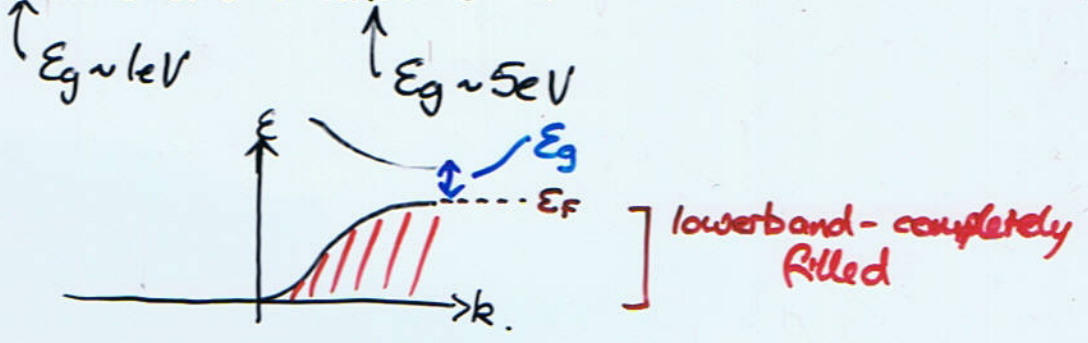 εg ~ 1eV
εg ~ 5eV
ε
εg
εF
lowerband - completely
filled
k.